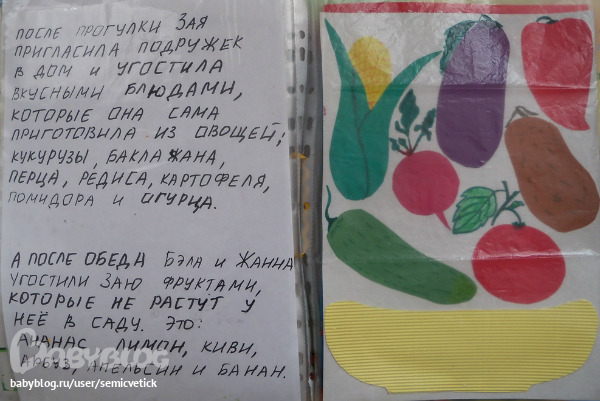 ПОСЛЕ ПРОГУЛКИ ЗАЯ
ПРИГЛАСИЛА ПОДРУЖЕК
В ДОМ И УГОСТИЛА
ВКУСНЫМИ БЛЮДАМИ,
КОТОРЫЕ ОНА САМА
ПРИГОТОВИЛА ИЗ ОВОЩЕЙ;
КУКУРУЗЫ, БАКЛАЖАНА,
ПЕРЦА, РЕДИСА, КАРТОФЕЛЯ,
ПОМИДОРА И ОГУРЦА.
А ПОСЛЕ ОБЕДА БЭЛА И ЖАННА
УГОСТИЛИ ЗАЮ ФРУКТАМИ,
КОТОРЫЕ НЕ РАСТУТ У
НЕЁ В САДУ. ЭТО:
АНАНАС ЛИМОН, КИВИ,
АРБУЗ, АПЕЛЬСИН И БАНАН.
BABYBLOG
babyblog.ru/user/semicvetick